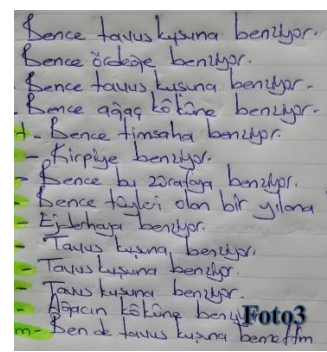 Bence tavus kuşuna benziyor.
Bence ördeğe benziyor.
Bence tavus kuşuna benziyor.
- Bence ağaç köküne benziyor.
- Bence timsaha benziyor.
- Kirpiye benziyor.
- Bence bu zürafaya benziyor.
- Bence tüyleri olan bir yılana
Ejderhaya benziyor.
- Tavus kuşuna benziyor.
- Tavus kuşuna benziyor.
- Tavus kuşuna benziyor.
- Ağacın köküne
m- Ben de tavus kuşuna benzettim
Foto3